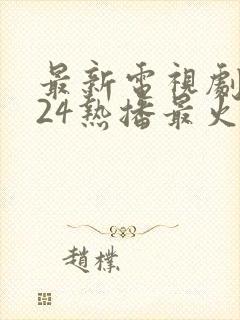 最新電視劇
24熱播最火
趙樸